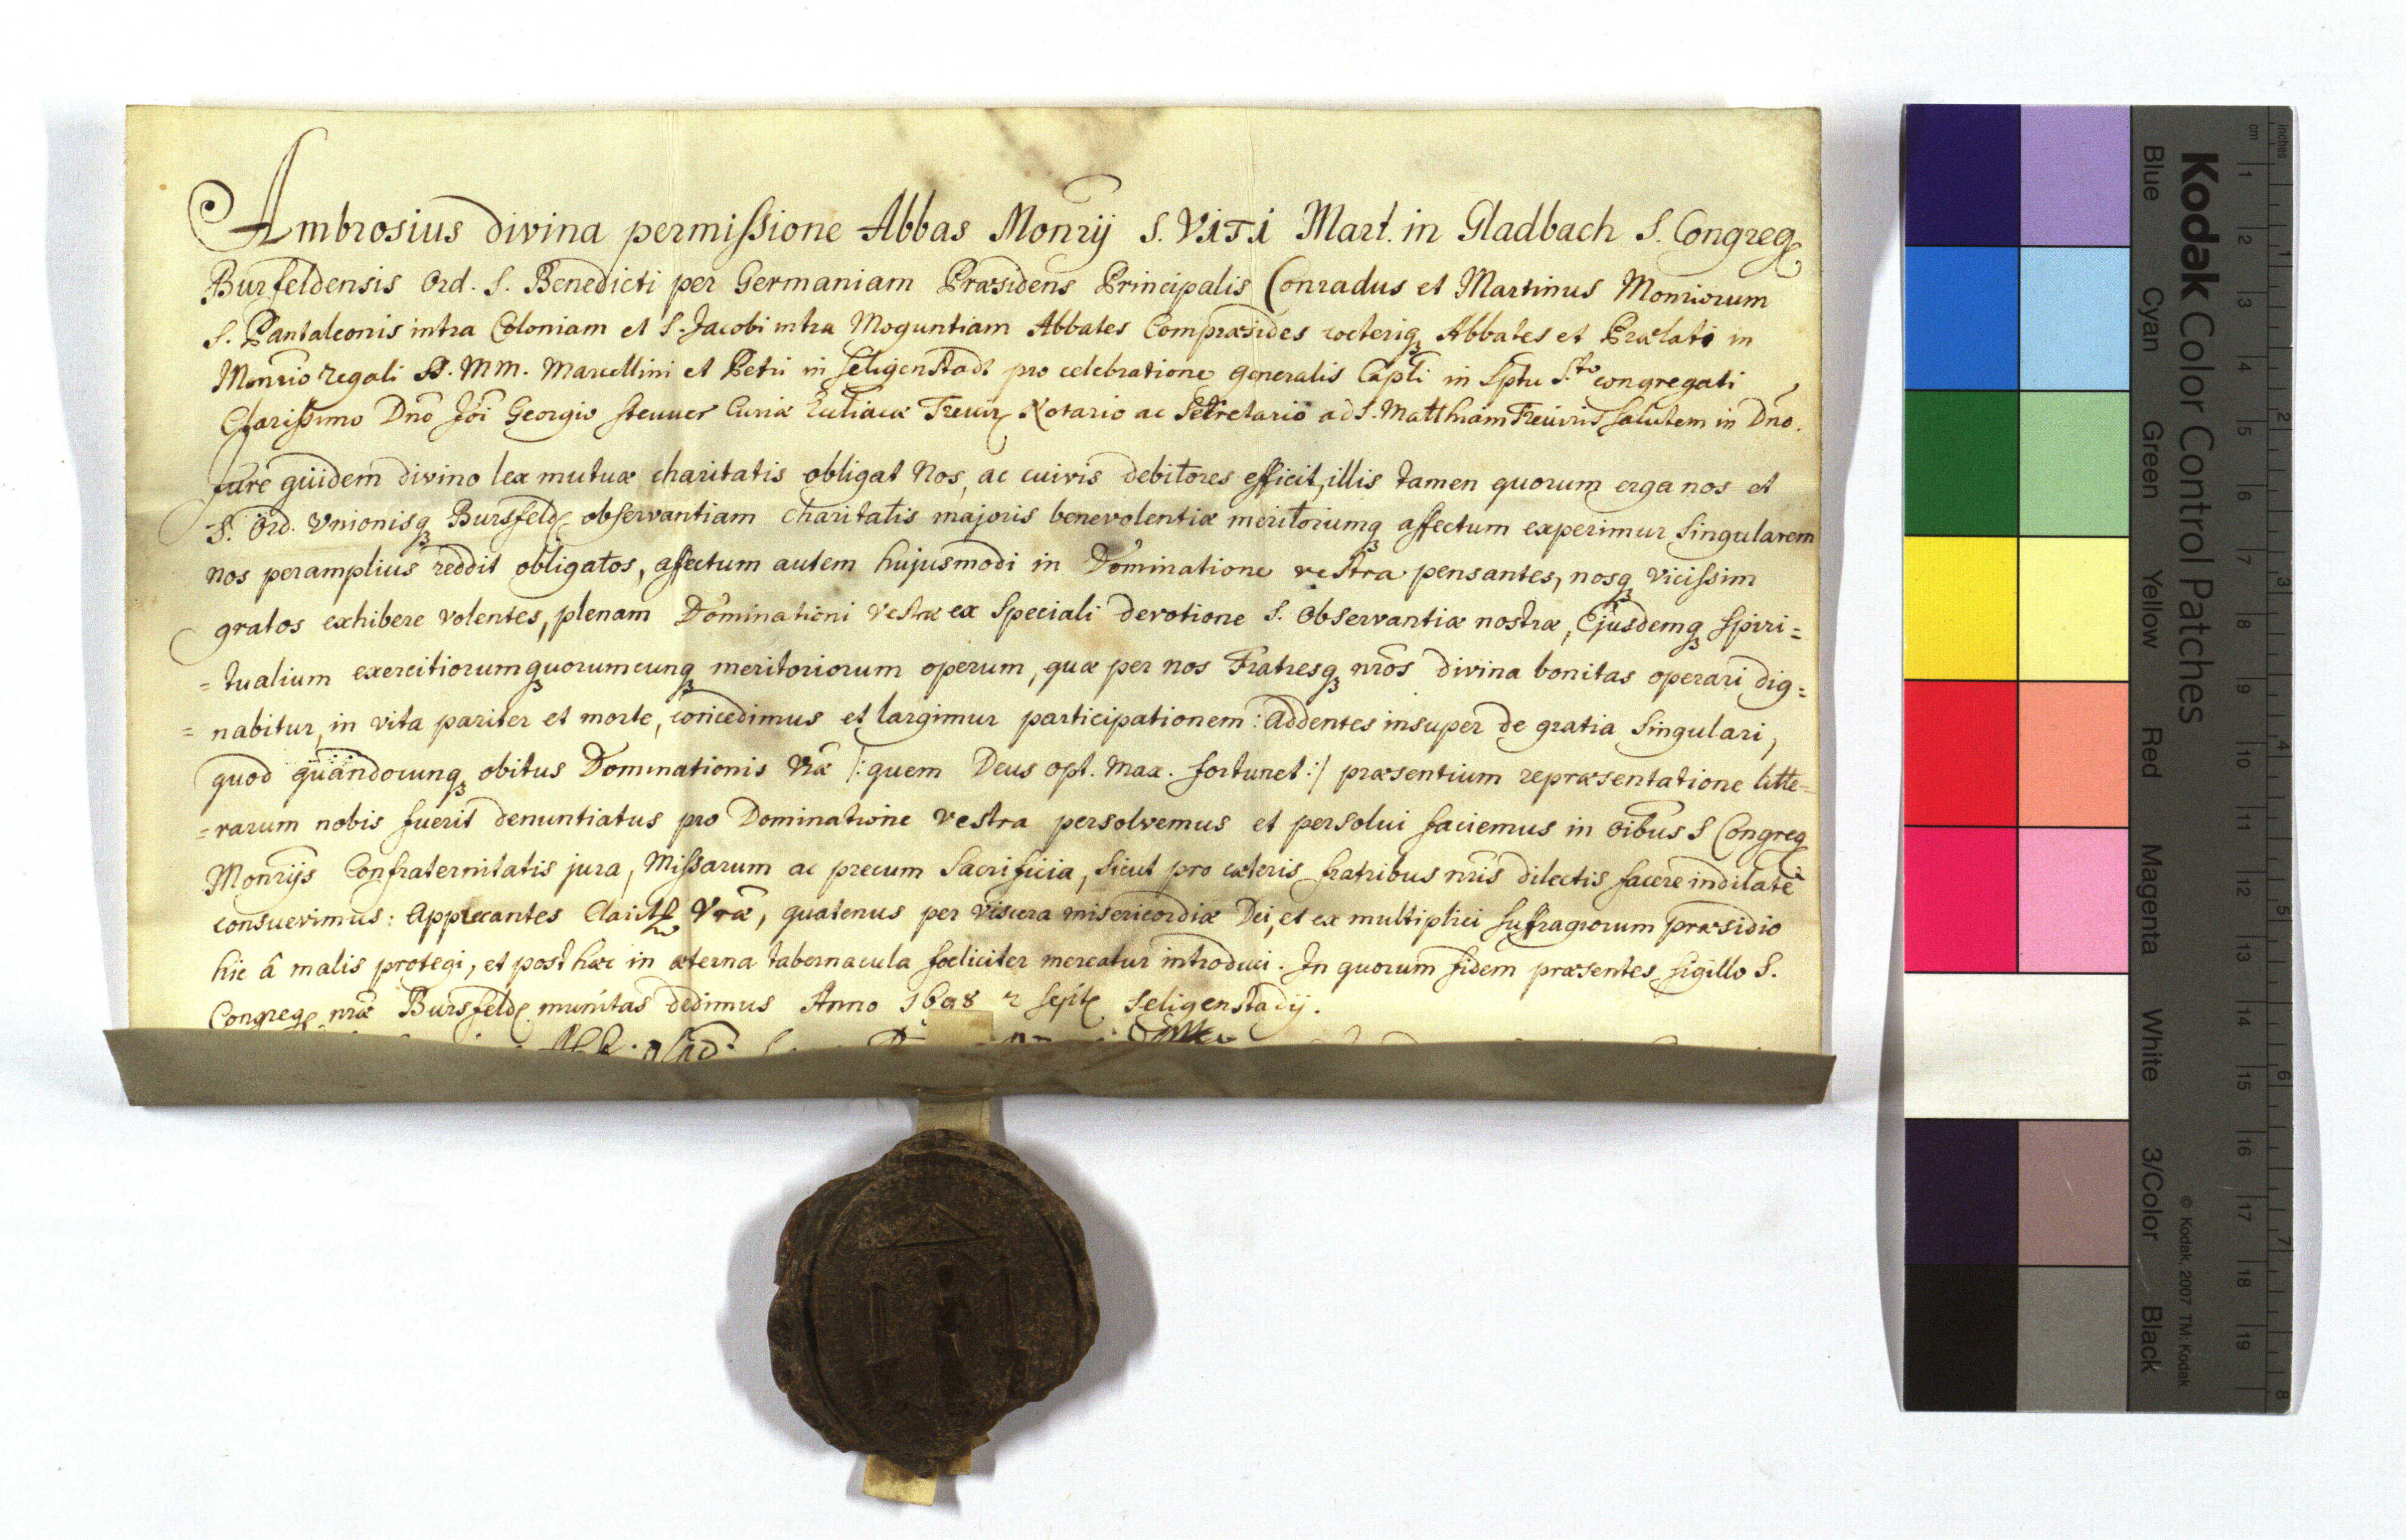 Ambrosius divina permissione Abbas Monrij S. ViTi Mart. in Gladbach S. Congreg
Bursfeldensis Ord. S. Benedicti per Germaniam Præsidens Principalis Conradus et Martinus Monriorum
S. Pantaleonis intra Coloniam et S. Jacobi intra Moguntiam Abbates Compræsides cæteriq Abbates et Prælati in
Monrio regali SS. MM. Marcellini et Petri in Seligenstadt pro celebratione generalis Capli in Sptu S.to congregati
Clarissimo Dno Joi Georgio Curiæ Notario ac Secretario ad S. Matthiam Treviris salutem in Dno.
Jure quidem divino lex mutuæ charitatis obligat Nos, ac cuivis debitores efficit, illis tamen quorum erga nos et
S. Ord. Vnionisq Bursfeld observantiam charitatis majoris benevolentiæ meritoriumq affectum experimur Singularem
nos peramplius reddit obligatos, affectum autem hujusmodi in Dominatione vestra pensantes, nosq vicissim
gratos exhibere volentes, plenam Dominationi vestræ ex Speciali devotione S. Observantiæ nostræ, Ejusdemq Spiri=
=tualium exercitiorum quorumcunq meritoriorum operum, quæ per nos Fratresq nros divina bonitas operari dig=
=nabitur, in vita pariter et morte, concedimus et largimur participationem: addentes insuper de gratia Singulari,
quod quandocunq obitus Dominationis vræ /: quem Deus opt. max. fortunet :/ præsentium repræsentatione litte=
=rarum nobis fuerit denuntiatus pro Dominatione vestra persolvemus et persolui faciemus in oibus S Congreg
Monrijs Confraternitatis jura, Missarum ac precum Sacrificia, Sicut pro cæteris fratribus nris dilectis facere indilatè
consuevimus: Apprecantes Vræ, quatenus per viscera misericordiæ Dei, et ex multiplici suffragiorum præsidio
hic â malis protegi, et post hæc in æterna tabernacula fœliciter mereatur introduci. In quorum fidem præsentes sigillo S.
Congreg nræ Bursfeld munitas dedimus Anno 1698 2 Septe Seligenstadij.
Kodak Color Control Patches
Blue Cyan Green Yellow Red Magenta White 3/Color Black
© Kodak, 2007 TM: Kodak
cm 1 2 3 4 5 6 7 8 9 10 11 12 13 14 15 16 17 18 19
inches 1 2 3 4 5 6 7 8